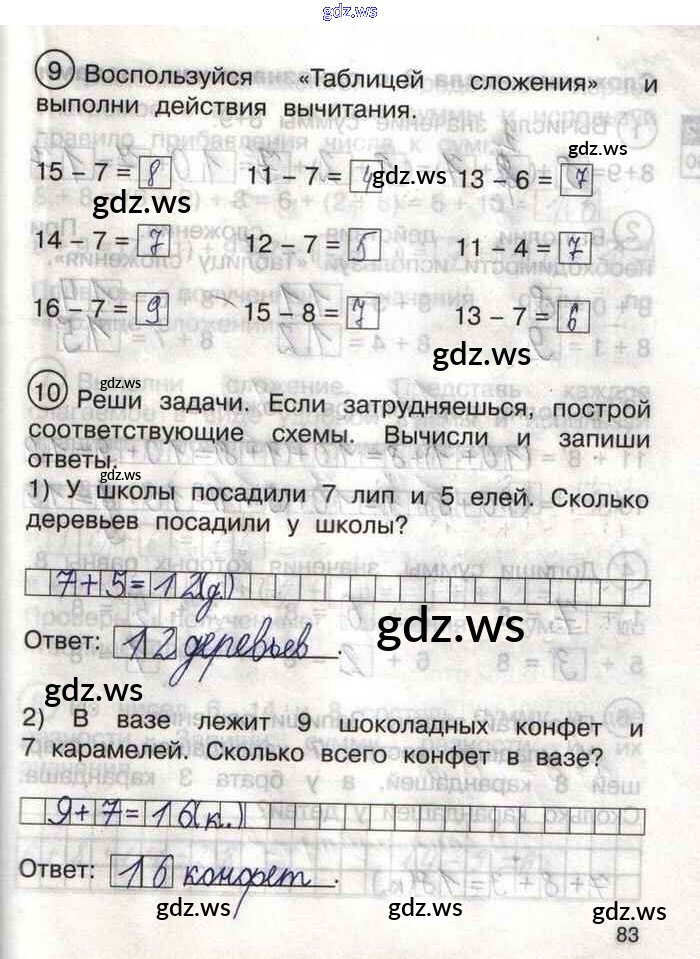 gdz.ws
9 Воспользуйся «Таблицей сложения» и
выполни действия вычитания.
gdz.ws
15 – 7 = 8 11 – 7 = 4 13 – 6 = 7
gdz.ws gdz.ws
14 – 7 = 7 12 – 7 = 5 11 – 4 = 7
16 – 7 = 9 15 – 8 = 7 13 – 7 = 6
gdz.ws
gdz.ws
10 Реши задачи. Если затрудняешься, построй
соответствующие схемы. Вычисли и запиши
ответы.
gdz.ws
1) У школы посадили 7 лип и 5 елей. Сколько
деревьев посадили у школы?
7+5=12(д.)
gdz.ws
Ответ: 12 деревьев.
gdz.ws
2) В вазе лежит 9 шоколадных конфет и
7 карамелей. Сколько всего конфет в вазе?
9+7=16(к.)
Ответ: 16 конфет.
gdz.ws gdz.ws gdz.ws
83